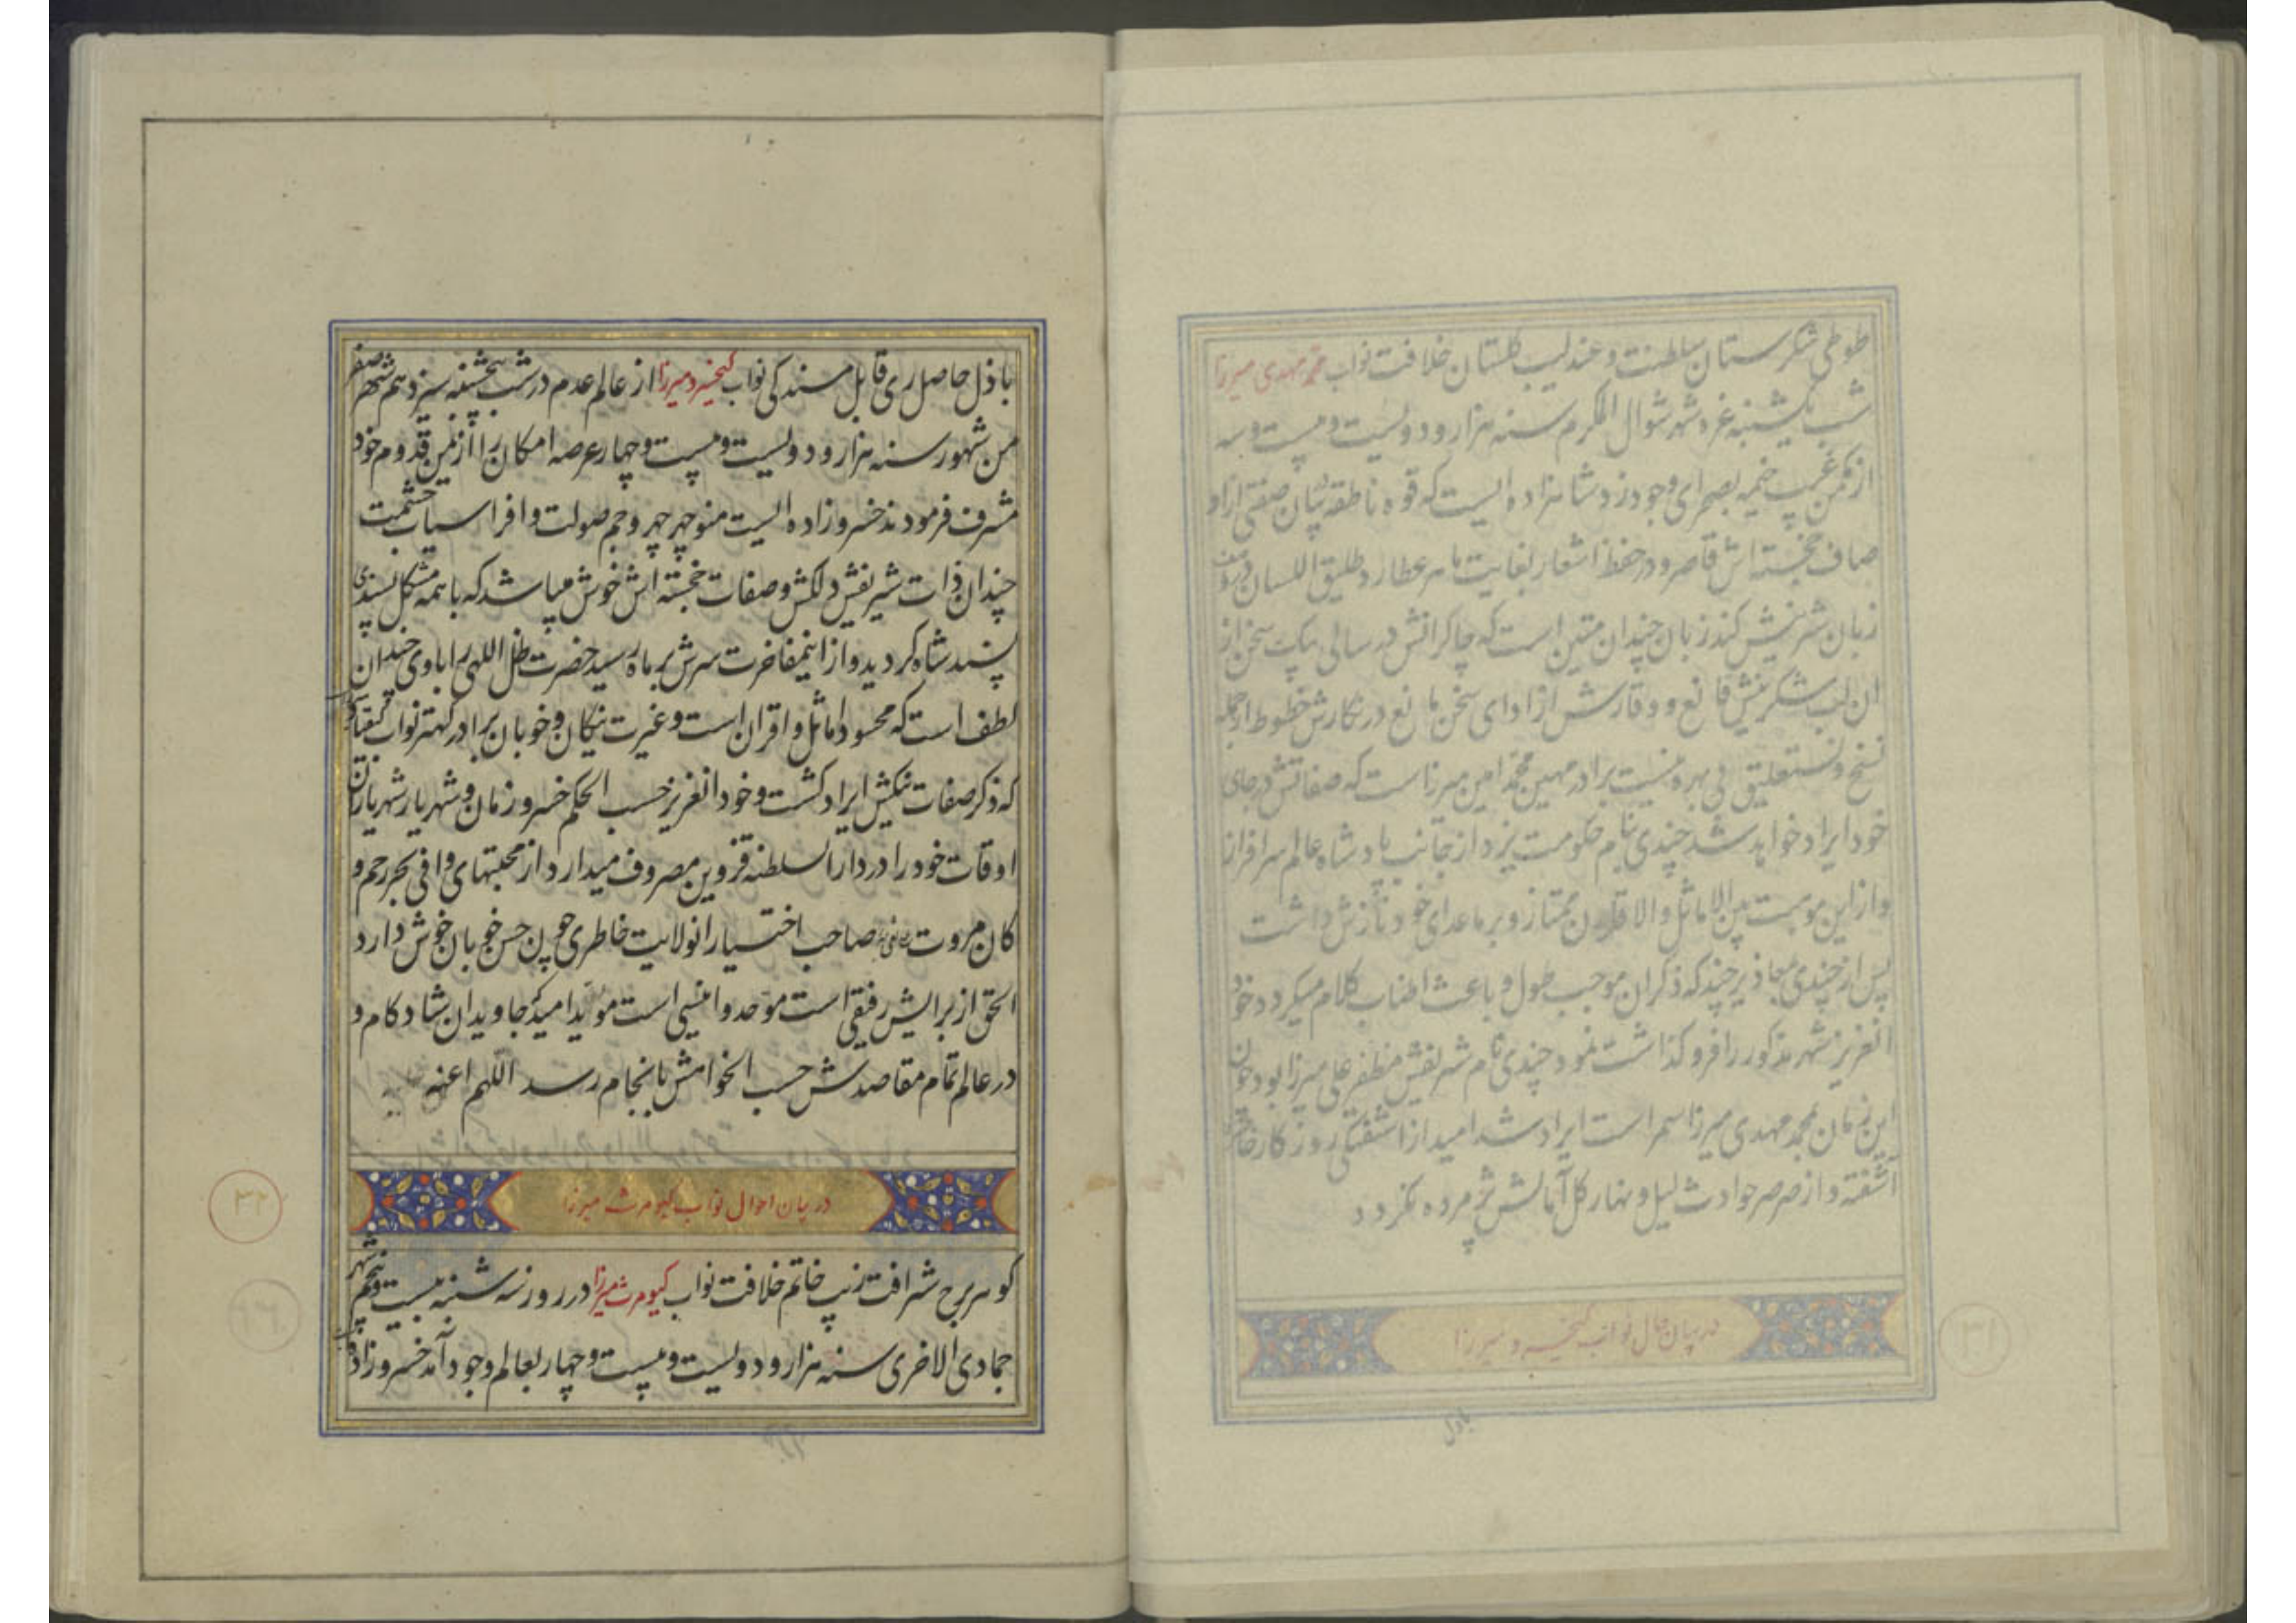 طوطی شکرستان سلطنت و عندلیب گلستان خلافت نواب محمد مهدی میرزا
شب یکشنبه غره شهر شوال المکرم سنه هزار و دولیست و بیست و سه
از مکمن غیب خیمه بصحرای وجود زد شاهزاده ایست که قوه ناطقه از بیان صفتی از او
صاف خجسته اش قاصر و در حفظ اشعار بغایت ماهر عطارد طلیق اللسان در وصف
زبان شیرینش کند زبان چندان متین است که چاکرانش در سالی بیک سخن از
ان لب شکرینش قانع و وقارش از ادای سخن مانع در نکارش خطوط از جمله
نسخ و نستعلیق بی بهره نیست برادر مهین محمد امین میرزاست که صفاتش در جای
خود ایراد خواهد شد چندی بنام حکومت یزد از جانب پادشاه عالم سرافراز
و از این موهبت بین الاماثل و الاقران ممتاز و بر ماعدای خود نازش داشت
پس از چندی بمحاذیر چند که ذکر ان موجب طول و باعث اطناب کلام میکردد خود
انعزیز شهر مذکور را فرو کذاشت نمود چندی نام شریفش مظفر علی میرزا بود چون
این زمان بمحمد مهدی میرزا سمر است ایراد شد امید از اشفتکی روزکار خاطرش
آشفته و از صرصر حوادث لیل و نهار کل آمالش پژمرده نکردد
در بیان حال نواب کیخسرو میرزا
۳۱
باذل
باذل حاصل ری قابل مسند کی نواب کیخسرو میرزا از عالم عدم در شب پنجشنبه سیزدهم شهر صفر
من شهور سنه هزار و دولیست و بیست و چهار عرصه امکان را از یمن قدوم خود
مشرف فرمودند خسروزاده ایست منوچهر چهر و جم صولت و افراسیاب حشمت
چندان ذات شریفش دلکش و صفات خجسته اش خوش میباشد که با همه مشکل پسندی
پسند شاه کردید و از اینمفاخرت سرش بر ماه رسید حضرت ظل اللهی را با وی چندان
لطف است که محسود اماثل و اقران است و غیرت نیکان و خوبان برادر کهتر نواب کیقباد
که ذکر صفات نیکش ایراد کشت و خود انعزیز حسب الحکم خسرو زمان و شهریار شهریاران
اوقات خود را در دار السلطنه قزوین مصروف میدارد از محبتهای وافی بحر رحم و
کان مروت صاحب اختیار انولایت خاطری چون حسن خوبان خوش دارد
الحق از برایش رفیقی است موحد و انیسی است موید امید که جاویدان شاد کام و
در عالم تمام مقاصدش حسب الخواهش بانجام رسد اللهم اعنه
در بیان احوال نواب کیومرث میرزا
۳۲
کوهر برج شرافت زیب خاتم خلافت نواب کیومرث میرزا در روز سه شنبه بیست و پنجم شهر
جمادی الاخری سنه هزار و دولیست و بیست و چهار بعالم وجود آمد خسروزاده